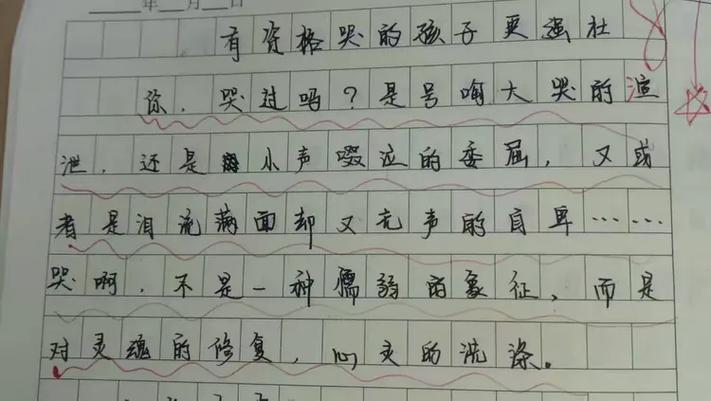 年 月 日
有资格哭的孩子更强壮
你,哭过吗?是号啕大哭的渲
泄,还是小声啜泣的委屈,又或
者是泪流满面却又无声的自卑……
哭啊,不是一种懦弱的象征,而是
对灵魂的修复,心灵的洗涤。